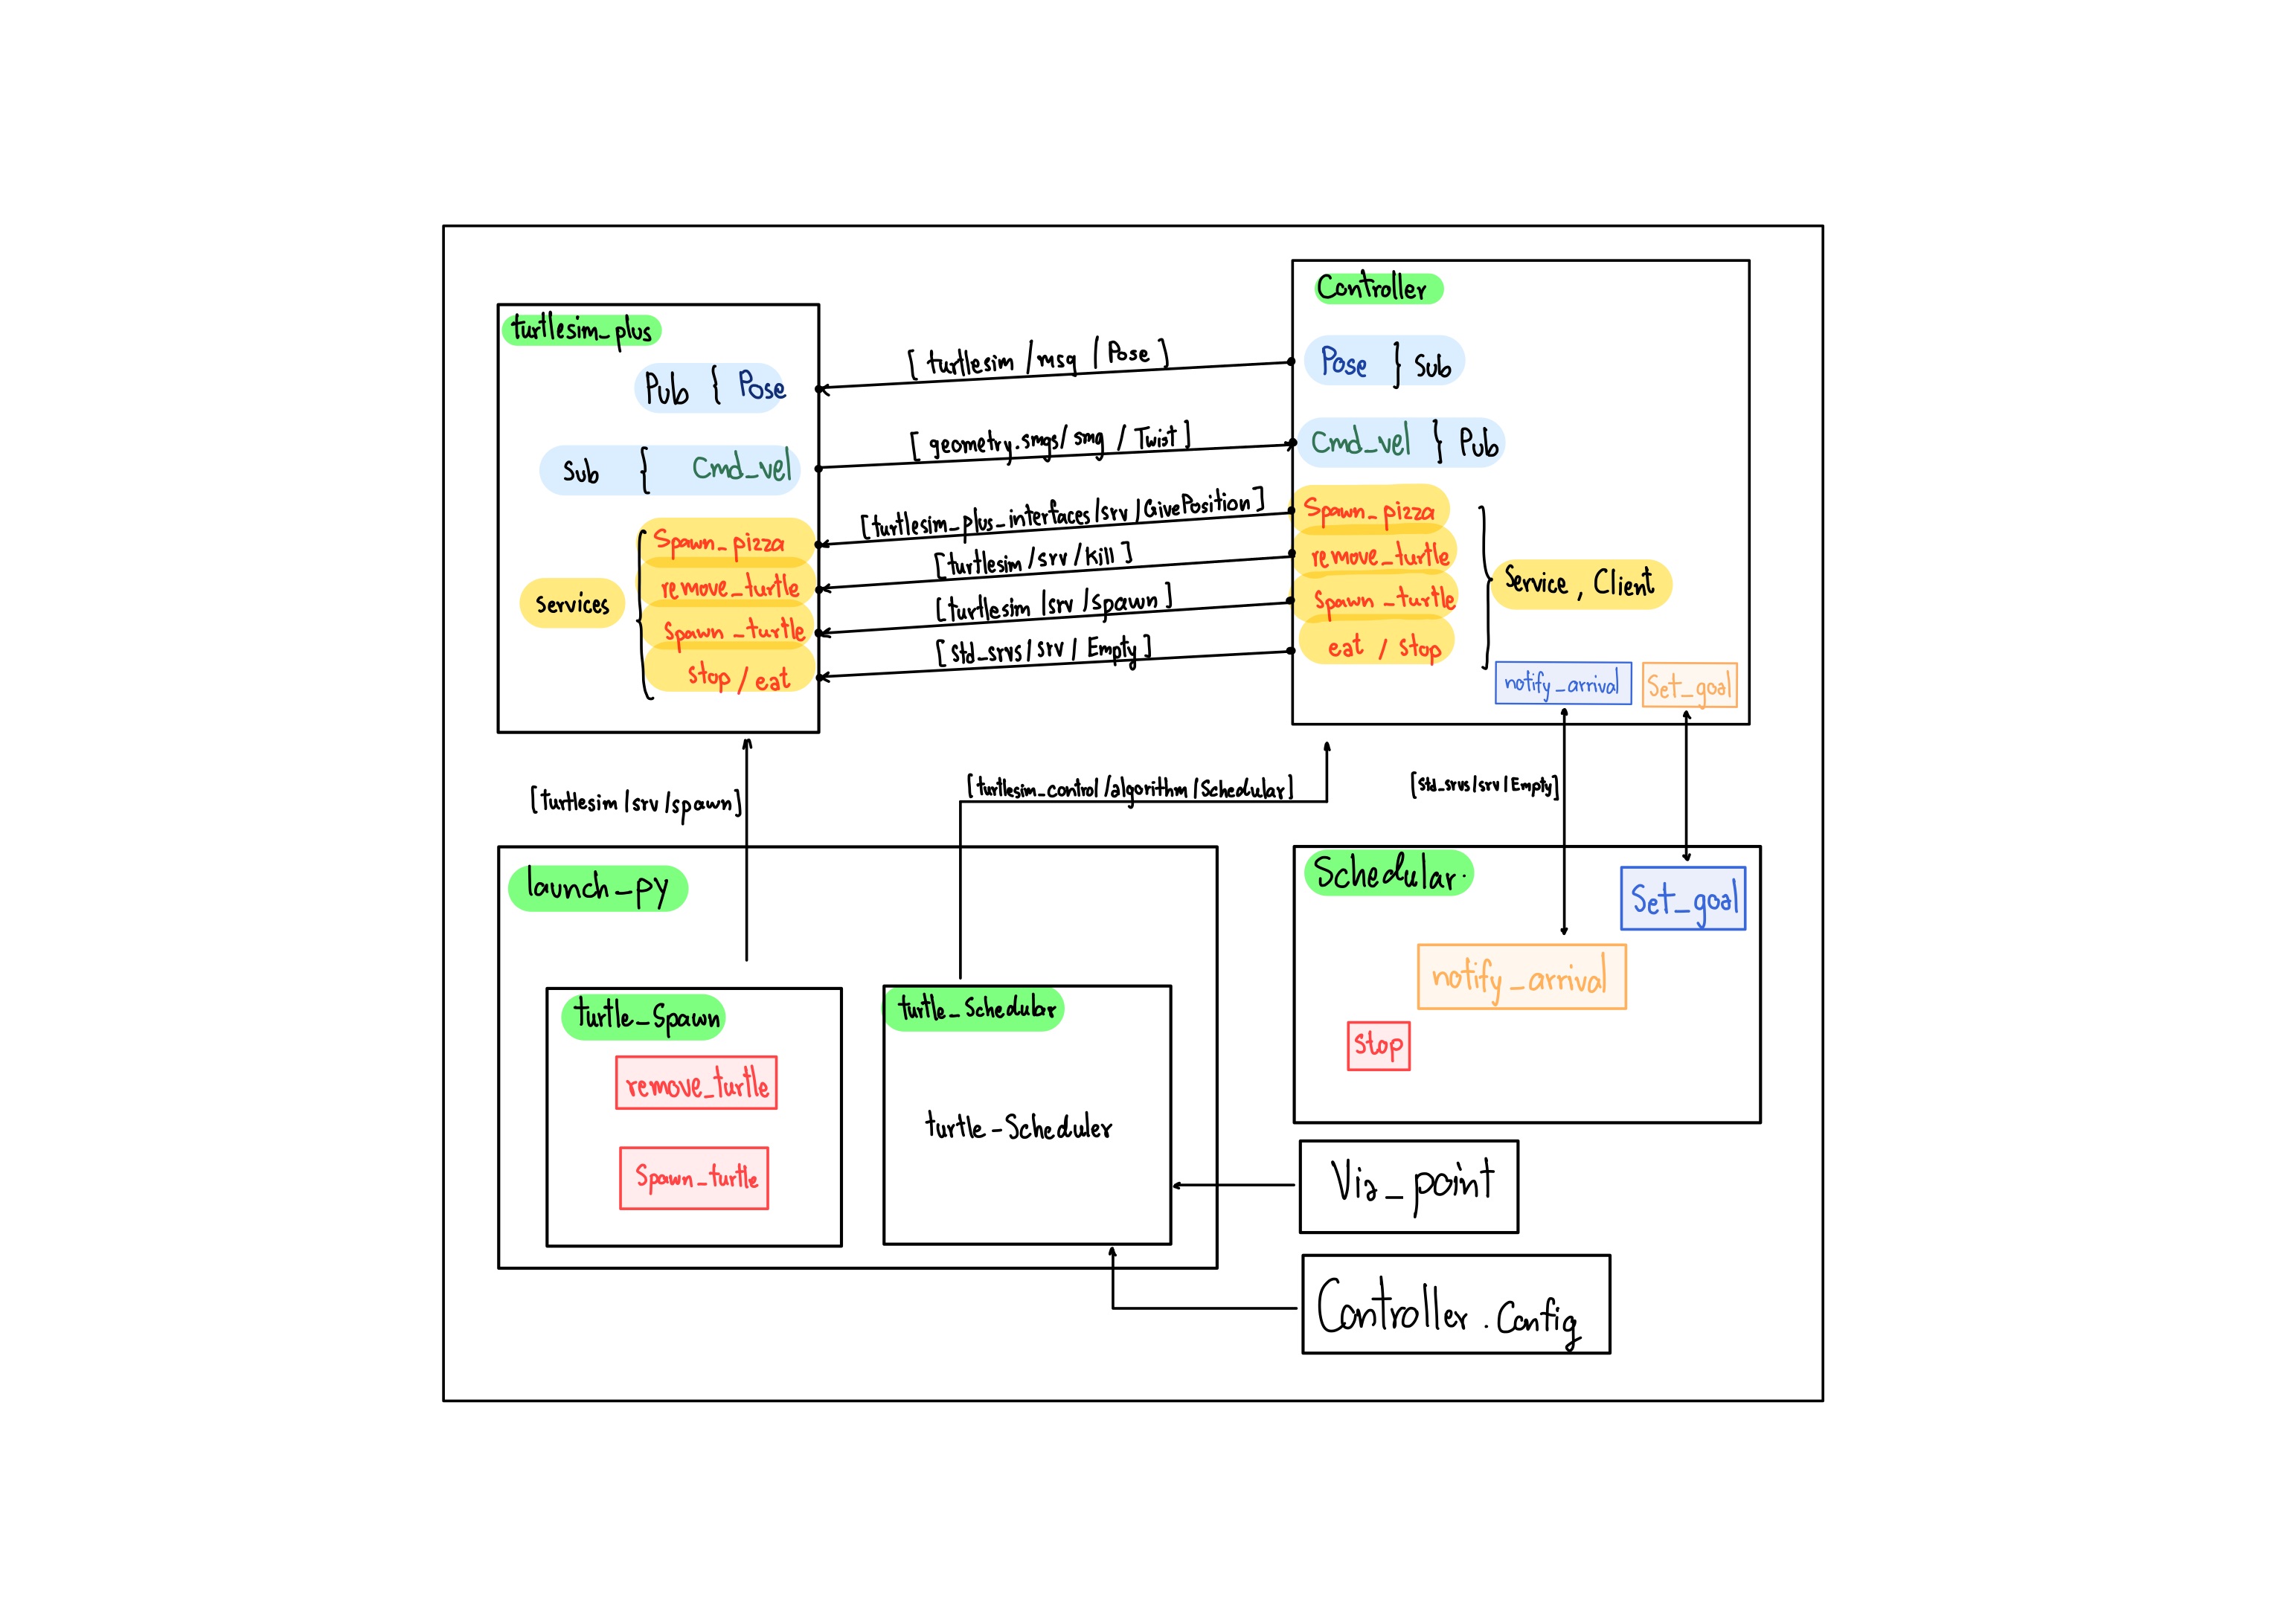 turtlesim_plus
Pub { Pose
Sub { Cmd_vel
Services
Spawn_pizza
remove_turtle
Spawn_turtle
stop / eat
[ turtlesim / msg / Pose ]
[ geometry.smgs / smg / Twist ]
[turtlesim_plus_interfaces/srv/GivePosition]
[turtlesim /srv /kill ]
[turtlesim /srv /spawn ]
[ std_srvs/ srv / Empty ]
Controller
Pose } Sub
Cmd_vel } Pub
Spawn_pizza
remove_turtle
Spawn_turtle
eat / stop
Service, Client
notify_arrival
Set_goal
[turtlesim /srv /spawn]
[turtlesim_control /algorithm /Schedular]
[std_srvs/srv/Empty]
launch_py
turtle_Spawn
remove_turtle
Spawn_turtle
turtle_Schedular
turtle-Scheduler
Schedular.
Set_goal
notify_arrival
stop
Via_point
Controller . Config